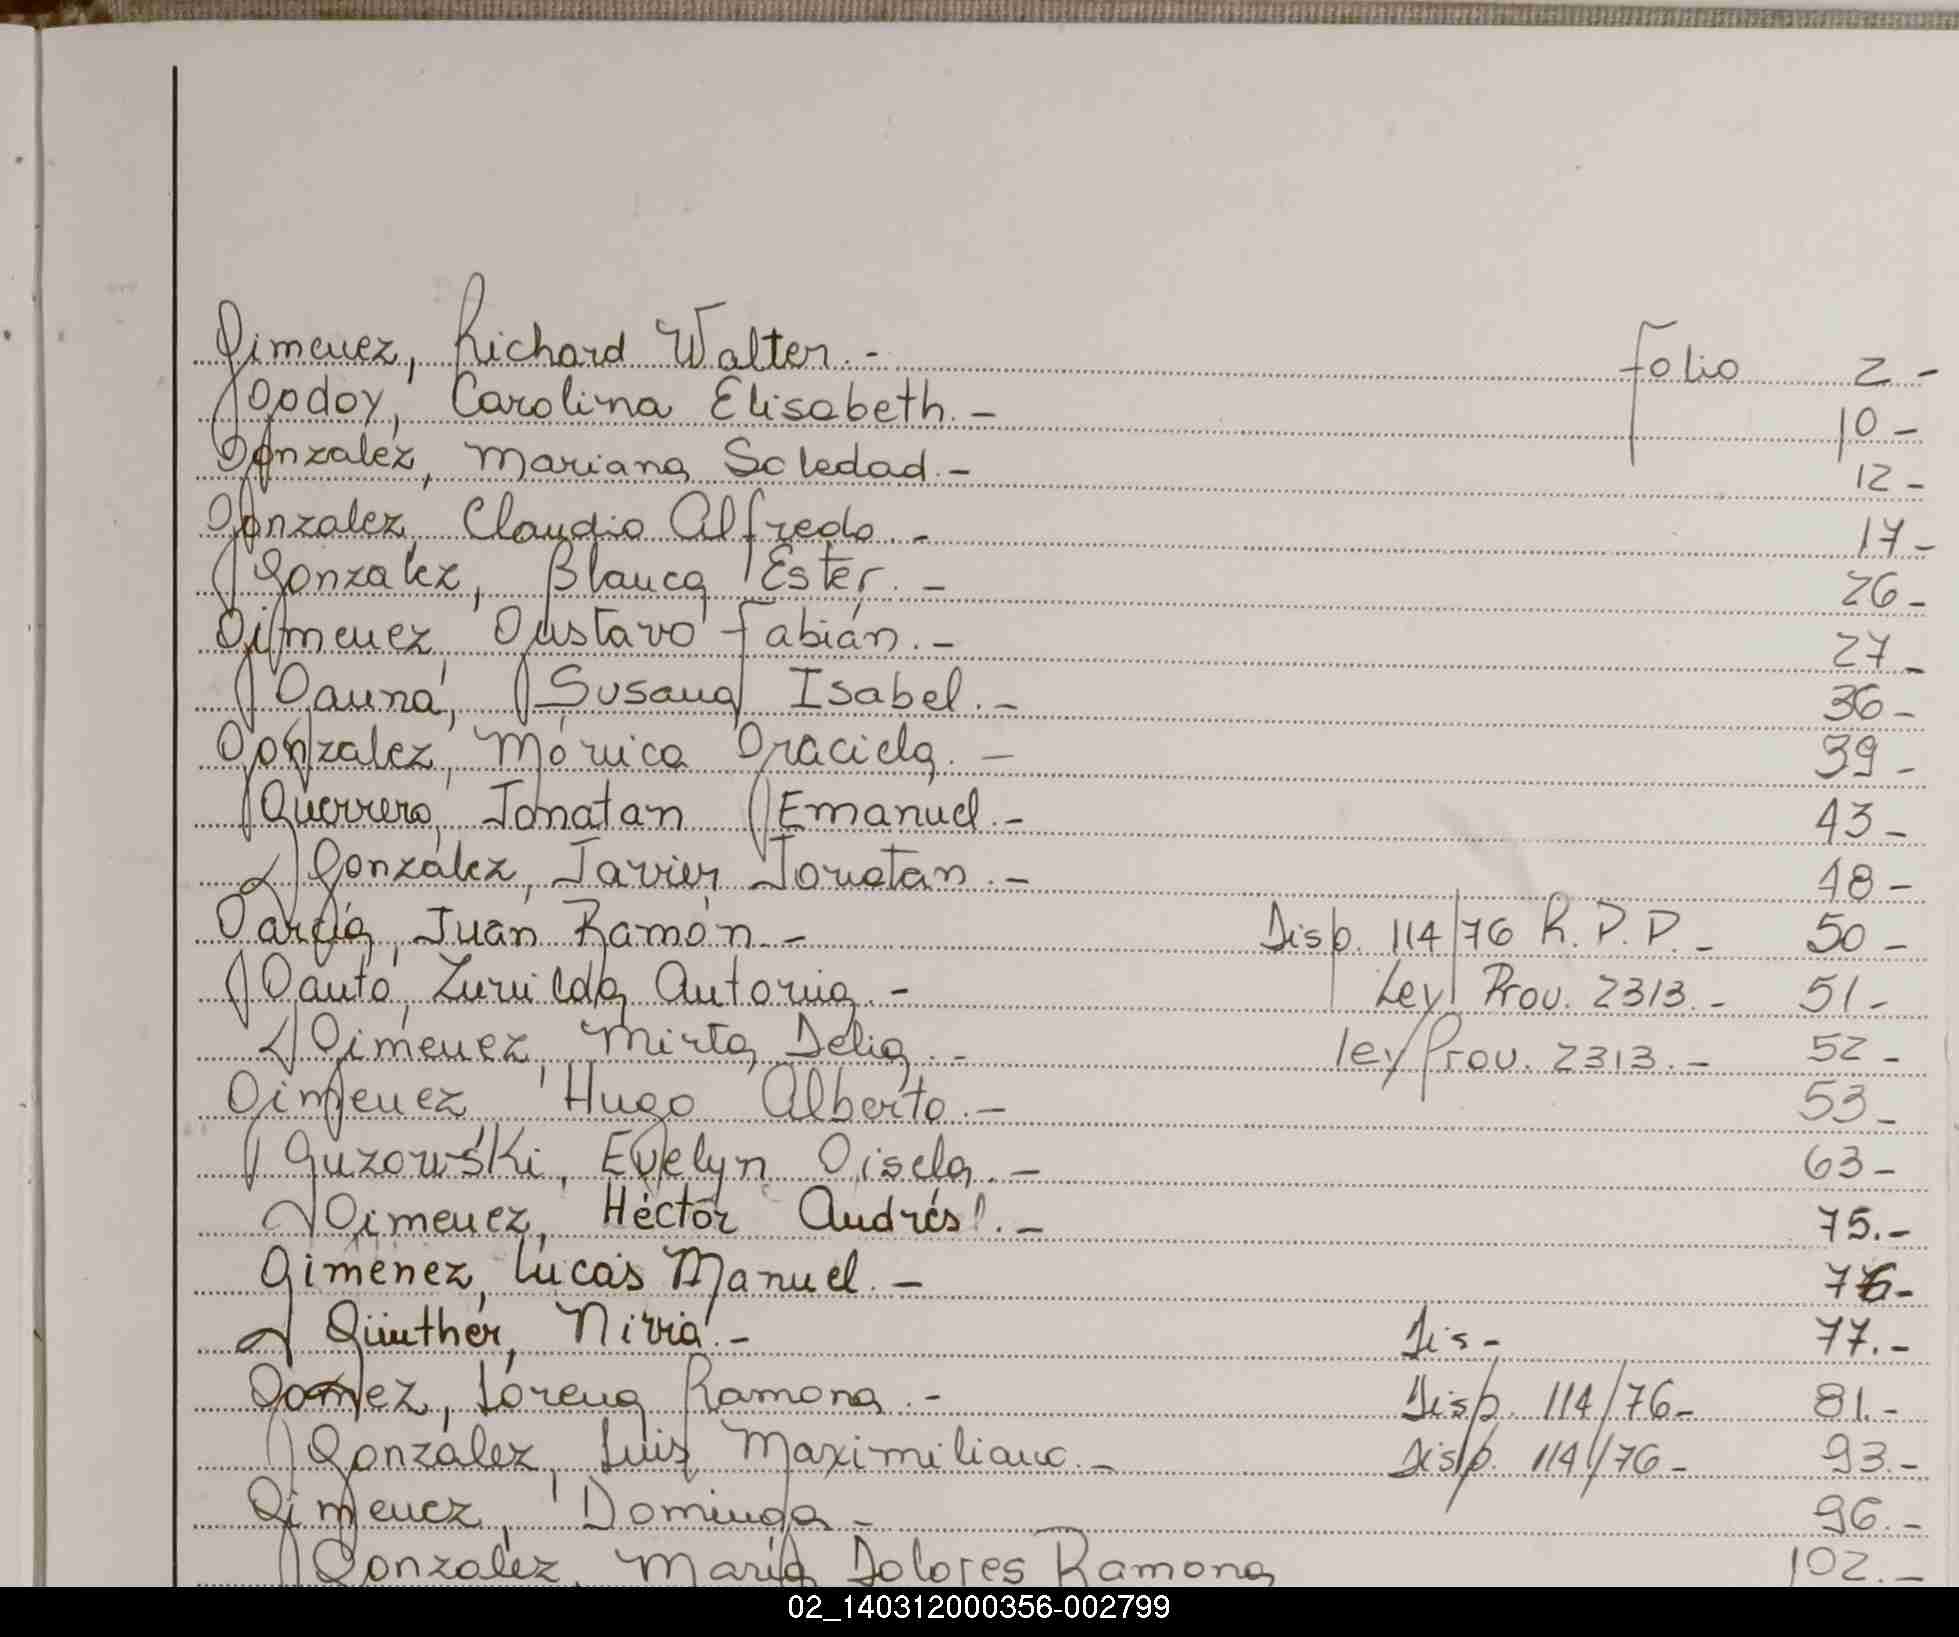 Gimenez, Richard Walter.- Folio 2-
Godoy, Carolina Elisabeth.- 10-
Gonzalez, Mariana Soledad.- 12-
Gonzalez, Claudio Alfredo.- 17-
Gonzalez, Blanca Ester.- 26-
Gimenez, Gustavo Fabián.- 27-
Gauna, Susana Isabel.- 36-
Gonzalez, Mónica Graciela.- 39-
Guerrero, Jonatan Emanuel.- 43-
González, Javier Jonatan.- 48-
García, Juan Ramón.- Disp. 114/76 R.P.P.- 50-
Gauto, Zunilda Antonia.- Ley Prov. 2313.- 51-
Gimenez, Mirta Delia.- ley Prov. 2313.- 52-
Gimenez, Hugo Alberto.- 53-
Guzowski, Evelyn Gisela.- 63-
Gimenez, Héctor Andrés.- 75.-
Gimenez, Lucas Manuel.- 76-
Günther, Niria.- Dis- 77.-
Gomez, Lorena Ramona.- Disp. 114/76- 81.-
González, Luis Maximiliano.- Disp. 114/76- 93.-
Gimenez, Dominga- 96.-
Gonzalez, María Dolores Ramona 102.-
02_140312000356-002799